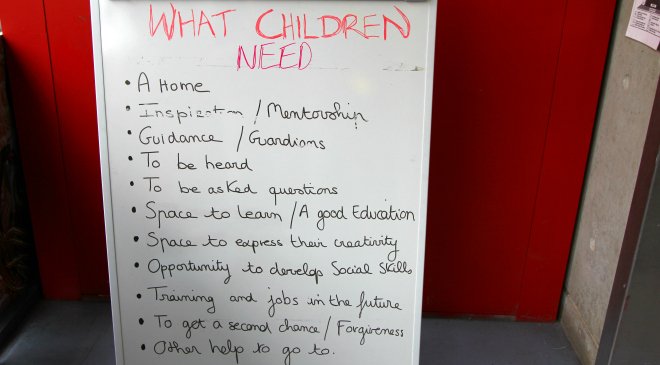 WHAT CHILDREN
NEED
• A Home
• Inspiration / Mentorship
• Guidance / Guardians
• To be heard
• To be asked questions
• Space to learn / A good Education
• Space to express their creativity
• Opportunity to develop Social Skills
• Training and jobs in the future
• To get a second chance / Forgiveness
• Other help to go to.